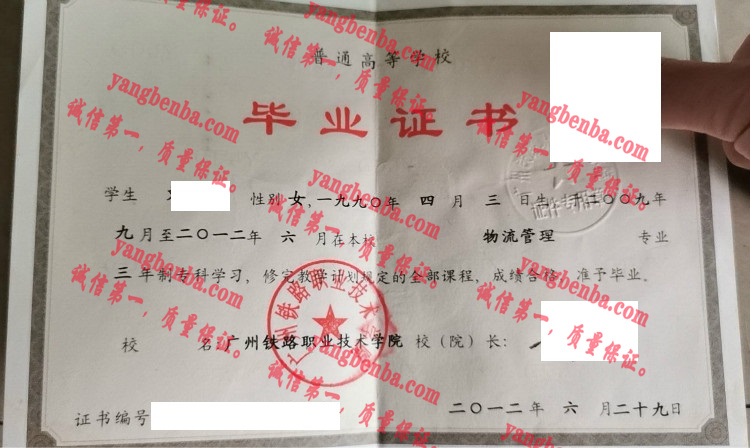 普通高等学校
毕业证书
学生 性别 女,一九九〇年 四 月 三 日生,于二〇〇九年
九 月至二〇一二年 六 月在本校 物流管理 专业
三 年制专科学习,修完教学计划规定的全部课程,成绩合格,准予毕业。
广州铁路职业技术学院
校 名:广州铁路职业技术学院 校(院)长:
证书编号
二〇一二年 六 月二十九日
yangbenba.com
诚信第一,质量保证。
yangbenba.com
诚信第一,质量保证。
yangbenba.com
诚信第一,质量保证。
yangbenba.com
诚信第一,质量保证。
yangbenba.com
诚信第一,质量保证。
yangbenba.com
诚信第一,质量保证。
yangbenba.com
诚信第一,质量保证。
yangbenba.com
诚信第一,质量保证。